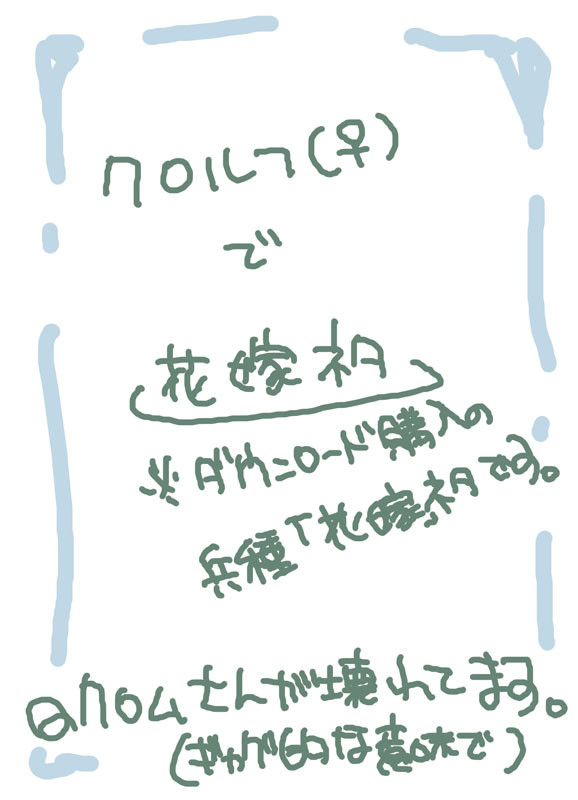 クロルフ(♀)
で
花嫁ネタ
※ダウンロード購入の
兵種「花嫁ネタです。
@クロムさんが壊れてます。
(ギャグ的な意味で)